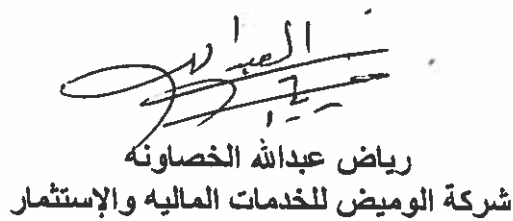 رياض عبدالله الخصاونه
شركة الوميض للخدمات الماليه والإستثمار